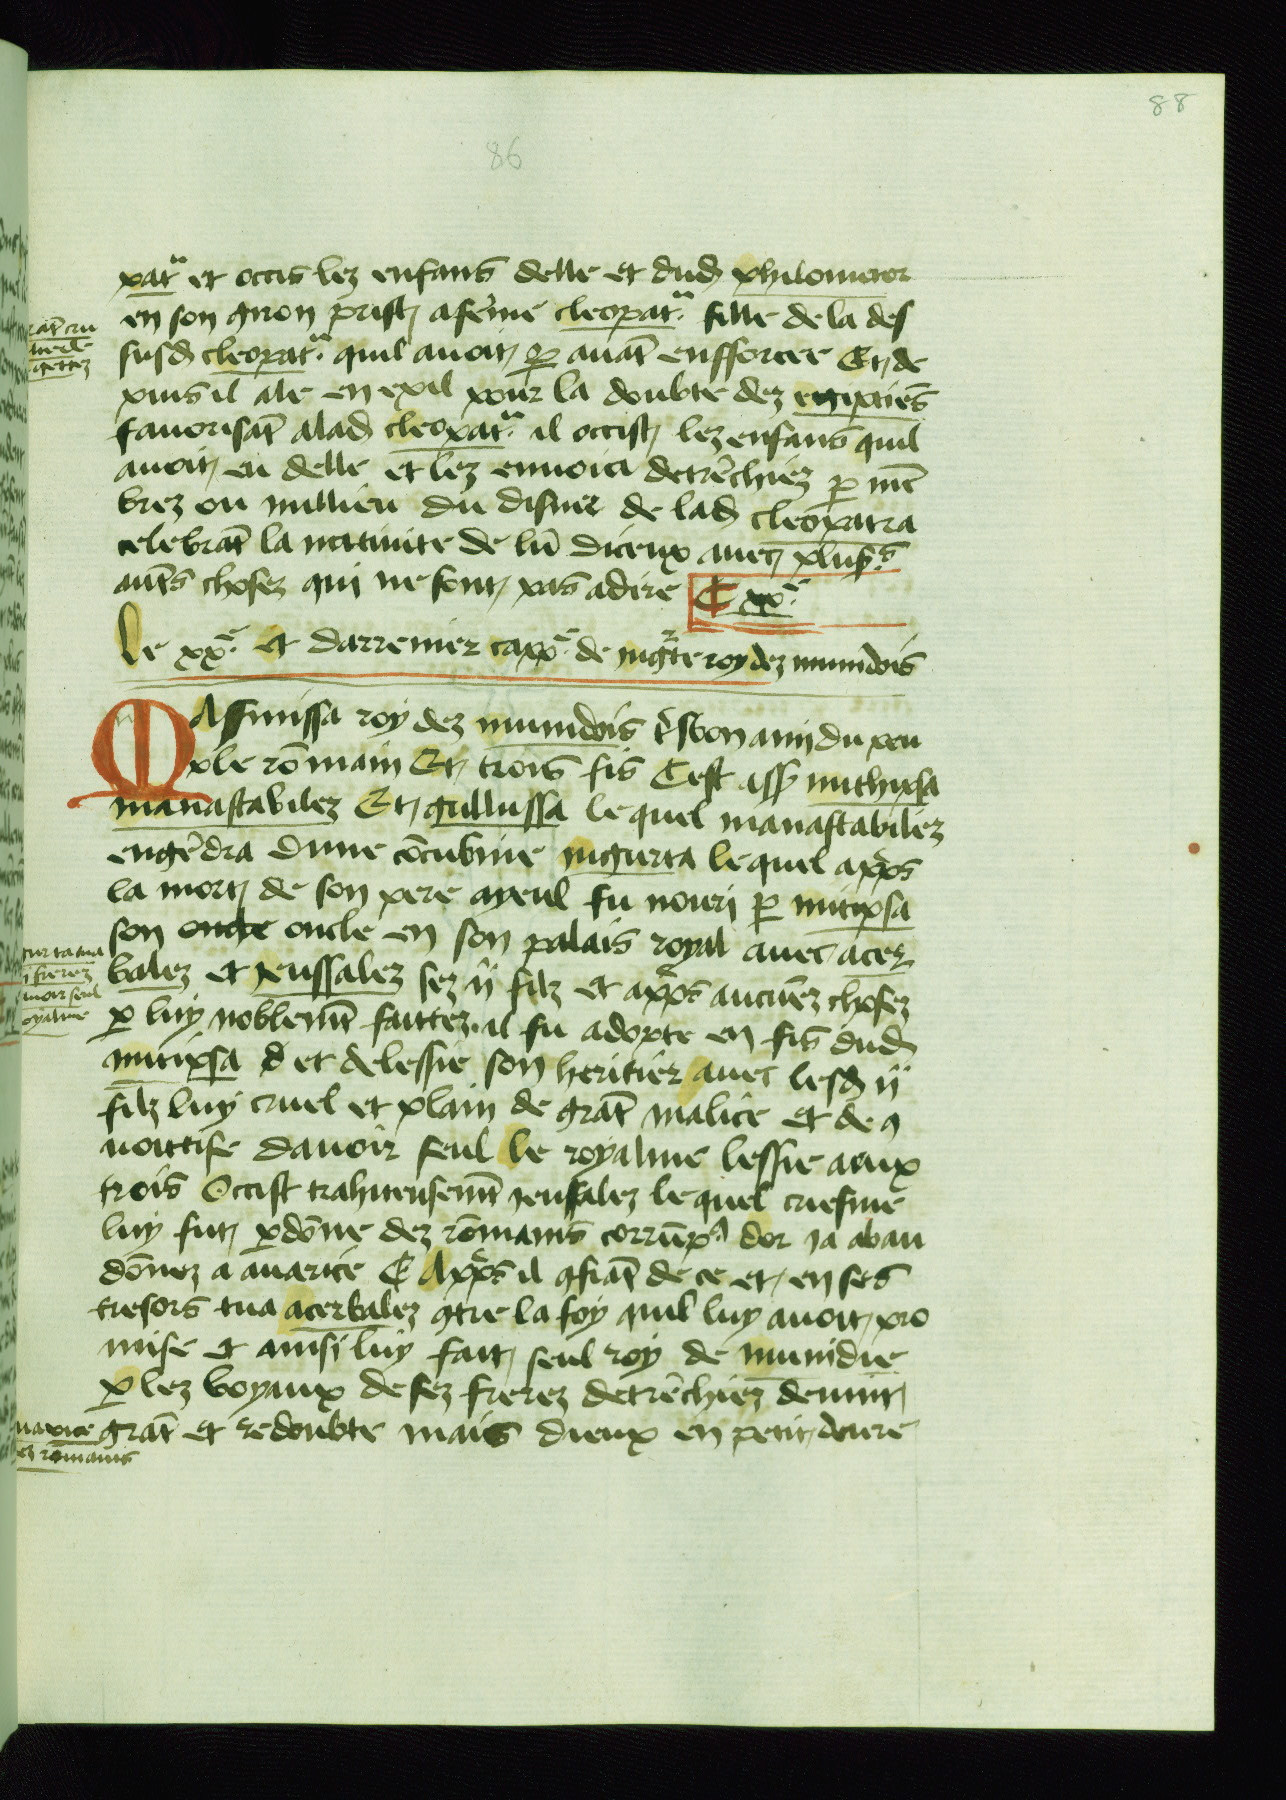 88
86
patra et occis lez enfans delle et dud philometor
en son giron prist a feme cleopatra fille de la des
susd cleopatra quil avoit par avat enfforcee Et de
puis il ale en exil pour la doubte dez egiptiens
favorisat a lad cleopatra il occist lez enfans quil
avoit eu delle et lez envoia detrenchiez par mem
brez ou millieu du disner de lad cleopatra
celebrat la nativite de luy diceux avec plusrs
autrs chosez qui ne sont pas a dire C xxe
Le xxe. et darrenier cappe. de iugrte roy dez numidois
MAssinissa roy dez numidois tres bon ami du peu
ple romain Et trois fis Cest ass michipsa
manastabilez Et gullussa le quel manastabilez
engendra dune concubine iugurta le quel apres
la mort de son pere ayeul fu nouri par micipsa
son oncle en son palais royal avec acer
balez et ieussalez sez ii filz et apres aucunez chosez
par luy noblement faittez. il fu adopte en fis dud
micipsa et delessie son heritier avec lesd ii
filz luy cruel et plain de grat malice et de co
voittise davoir seul le royalme lessie a eux
trois Occist trahiteusement ieussalez le quel criesme
luy fut pardone dez romains corrump dor ia aban
donez a avarice C Apres il confiat de ce et en ses
tresors tua acerbalez contre la foy quil luy avoit pro
mise et ainsi luy fait seul roy de numidie
par lez boyaux de sez frerez detrenchiez devint
grat et redoubte mais dieux en petit deure
gurta tua
ii frerez
avoir seul
oyalme
ez romains